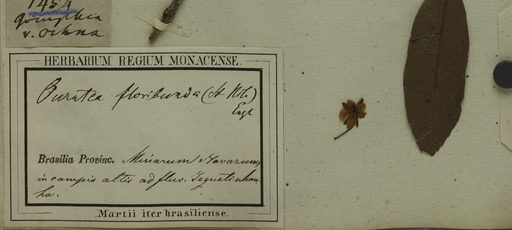 1454
Gomphia
v. Ochna
HERBARIUM REGIUM MONACENSE.
Ouratea floribunda (St Hil.)
Engl
Brasilia Provinc. Minarum Novarum,
in campis altis ad fluv. Jequetinhon-
ha.
Martii iter brasiliense.